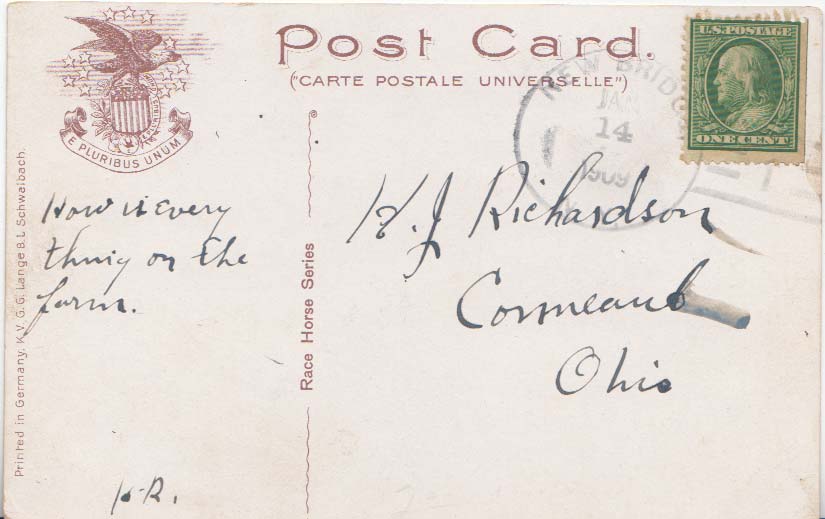 Post Card.
("CARTE POSTALE UNIVERSELLE")
E PLURIBUS UNUM
U.S. POSTAGE
ONE CENT
NEW BRIDG
JAN
14
1909
How is Every
thing on the
farm.
H.R.
H. J Richardson
Conneaut
Ohio
Race Horse Series
Printed in Germany. K.V.G.G. Lange & L. Schwalbach.